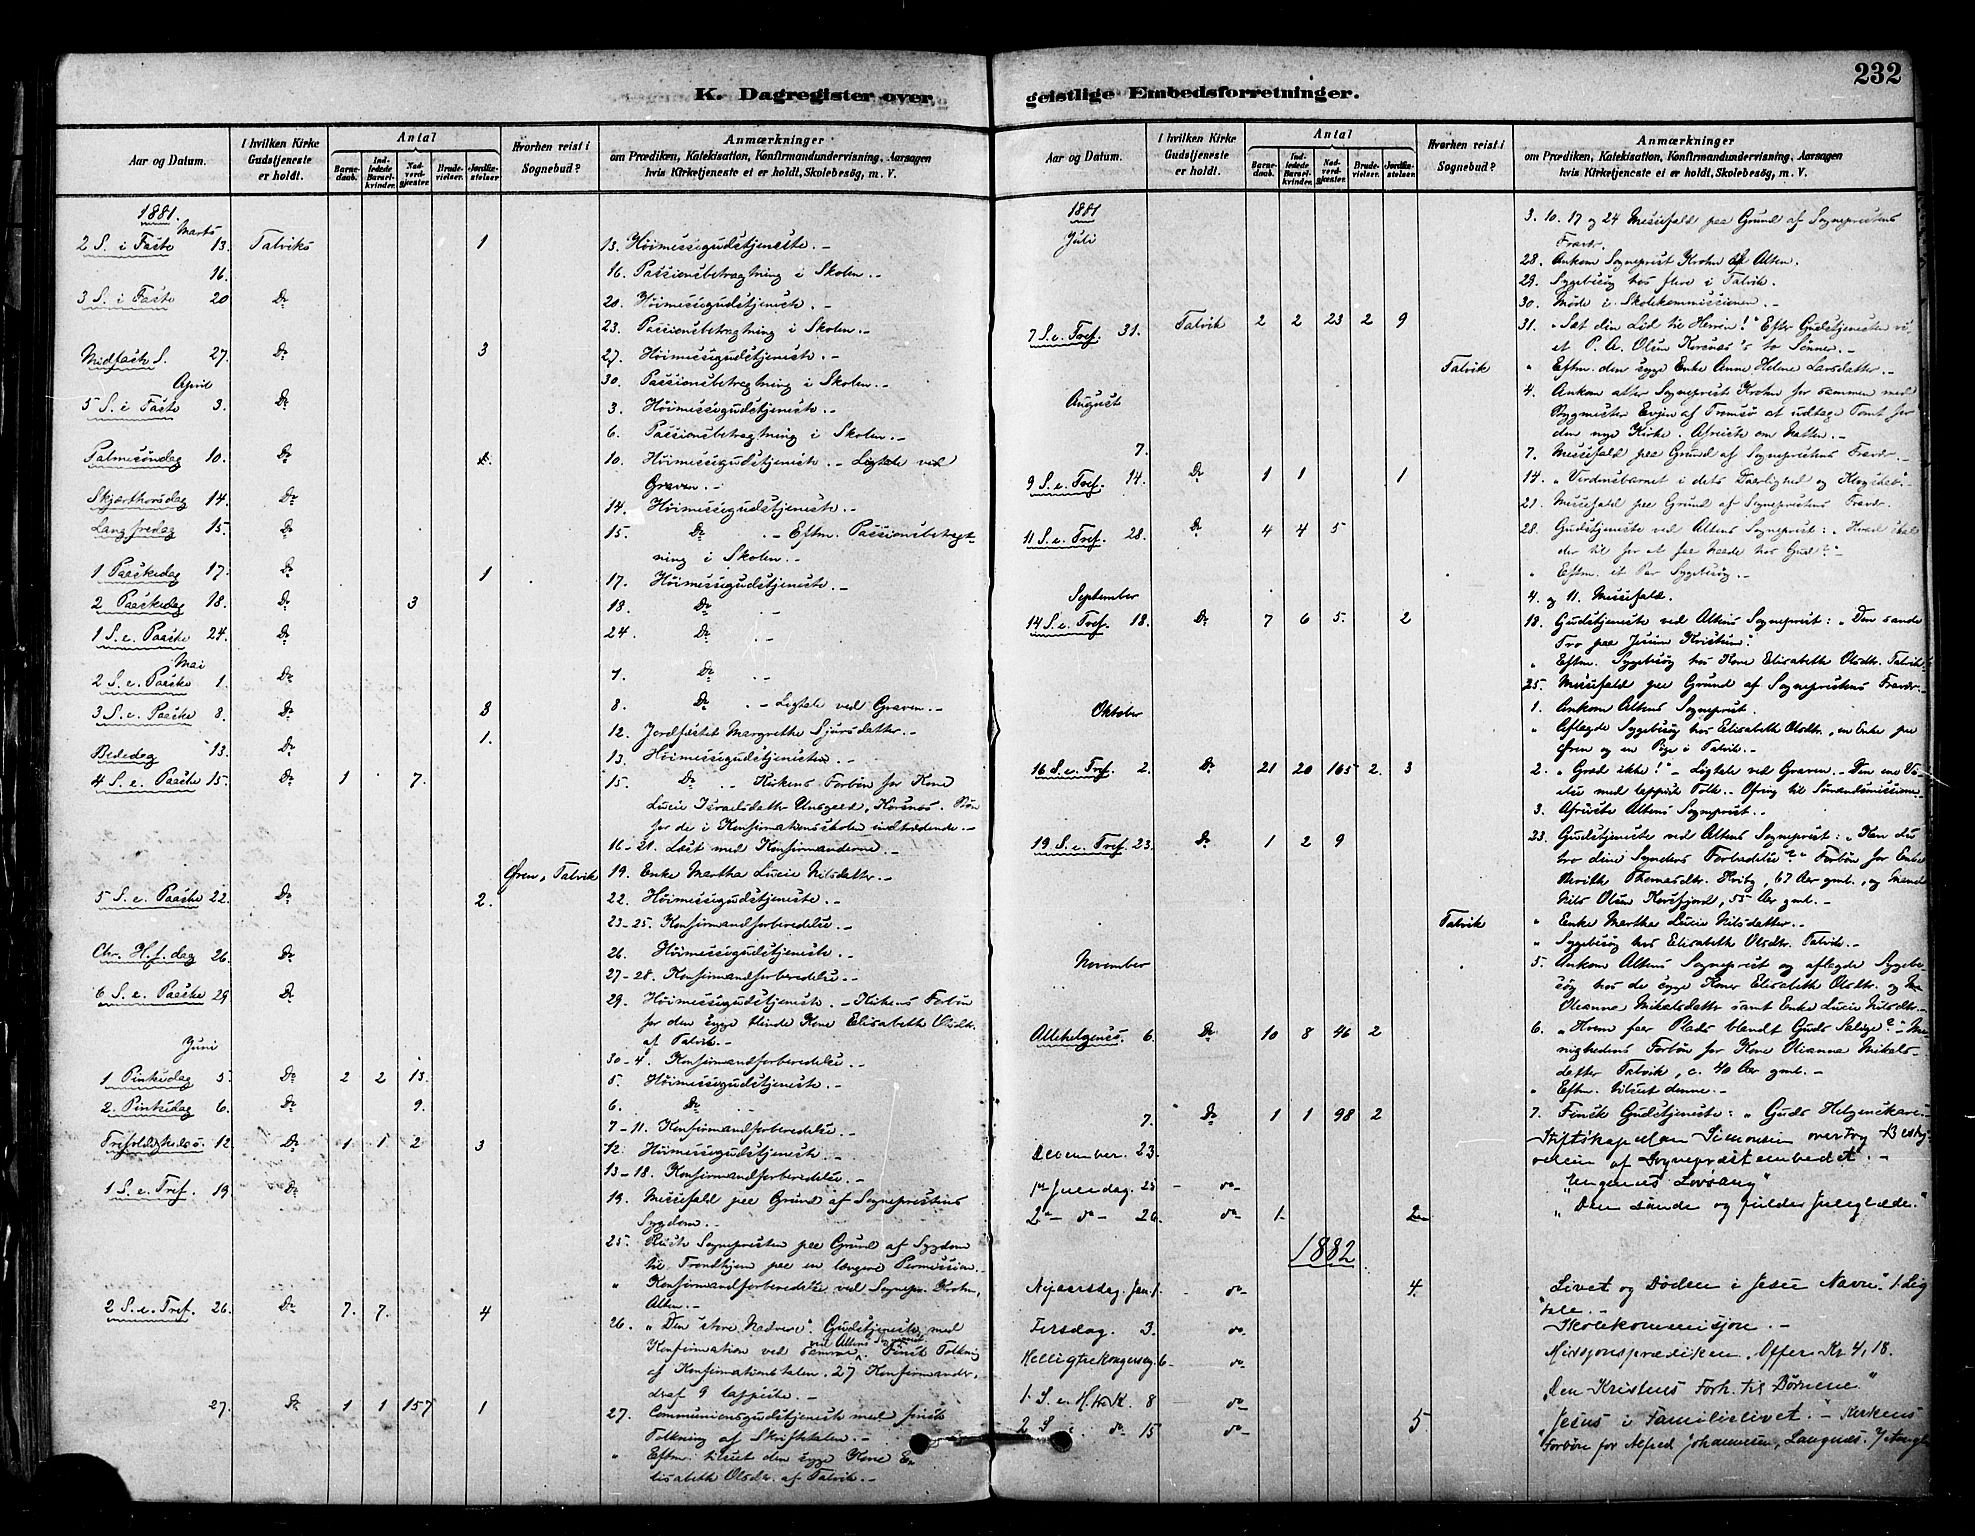 K. Dagregister over
Aar og Datum.
I hvilken Kirke Gudstjeneste er holdt.
Antal
Barnedaab.
Indledede Barselkvinder.
Nadverdgjæster.
Brudevielser.
Jordfæstelser
Hvorhen reist i Sognebud?
Anmærkninger
om Prædiken, Katekisation, Konfirmandundervisning, Aarsagen
hvis Kirketjeneste ei er holdt, Skolebesøg, m. V.
1881.
Marts
2 S. i Faste 13. Talviks 1 13. Höimessegudstjeneste. -
16. 16. Passionsbetragtning i Skolen. -
3 S. i Faste 20 Do 20. Höimessegudstjeneste. -
23. Passionsbetragtning i Skolen. -
Midfaste S. 27. Do 3 27. Höimessegudstjeneste. -
30. Passionsbetragtning i Skolen. -
April
5 S. i Faste 3. Do 3. Höimessegudstjeneste. -
6. Passionsbetragtning i Skolen. -
Palmesöndag 10. Do 10. Höimessegudstjeneste. - Ligtale ved
Graven. -
Skjærthorsdag 14. Do 14. Höimessegudstjeneste. -
Langfredag 15. Do 15. Do - Eftm. Passionsbetragt-
ning i Skolen. -
1 Paaskedag 17. Do 1 17. Höimessegudstjeneste. -
2 Paaskedag 18. Do 3 18. Do -
1 S. e. Paaske 24. Do 24. Do -
Mai
2 S. e. Paaske 1. Do 1. Do -
3 S. e. Paaske 8. Do 3 8. Do - Ligtale ved Graven. -
1. 12. Jordfæstet Margrethe Sjursdatter. -
Bededag 13. Do 13. Höimessegudstjeneste
4 S. e. Paaske 15. Do 1 7. 15. Do - Kirkens Forbön for Kone
Lucie Israelsdatter Korsnæs. Bön
for de i Konfirmationsskolen indtrædende. -
16-21. Læst med Konfirmanderne. -
Øren, Talvik 19. Enke Martha Lucie Nilsdatter. -
5 S. e. Paaske 22. Do 2. 22. Höimessegudstjeneste. -
23-25. Konfirmandforberedelse. -
Chr. H. f. dag 26. Do 26. Höimessegudstjeneste. -
27-28. Konfirmandforberedelse. -
6 S. e. Paaske 29 Do 29. Höimessegudstjeneste. - Kirkens Forbön
for den syge blinde Kone Elisabeth Olsdtr.
af Talvik. -
Juni
30-4. Konfirmandforberedelse. -
1 Pintsedag 5. Do 2 2 13. 5. Höimessegudstjeneste. -
2. Pintsedag 6. Do 9. 6. Do
7-11. Konfirmandforberedelse. -
Trefoldighedss. 12 Do 1 1 2 3 12. Höimessegudstjeneste. -
13-18. Konfirmandforberedelse. -
1 S. e. Tref. 19 Do 19. Messefald paa Grund af Sogneprestens
Sygdom. -
25. Reiste Sognepresten paa Grund af Sygdom
til Trondhjem paa en længere Permission. -
" Konfirmandforberedelse ved Sognepr. Krohn,
Alten. -
2 S. e. Tref. 26. Do 7. 7. 4 26. "Den store Nadvere". Gudstjeneste med
Konfirmation ved samme. Finsk Tolkning
af Konfirmationstalen. 27 Konfirmander,
deraf 9 lappiske. -
27. Do 1 1 157 1 27. Communionsgudstjeneste med finsk
Tolkning af Skriftetalen. -
" Eftm. tilseet den syge Kone E-
lisabeth Olsdtr. af Talvik. -
geistlige Embedsforretninger.
232
Aar og Datum.
I hvilken Kirke Gudstjeneste er holdt.
Antal
Barnedaab.
Indledede Barselkvinder.
Nadverdgjæster.
Brudevielser.
Jordfæstelser
Hvorhen reist i Sognebud?
Anmærkninger
om Prædiken, Katekisation, Konfirmandundervisning, Aarsagen
hvis Kirketjeneste ei er holdt, Skolebesøg, m. V.
1881
Juli
3. 10. 17 og 24 Messefald paa Grund af Sogneprestens
Fravær.
28. Ankom Sogneprest Krohn af Alten.
29. Sygebesög hos flere i Talvik.
30. Möde i Skolekommissionen. -
7 S. e. Tref. 31. Talvik 2 2 23 2 9 31. "Sæt din Lid til Herren!" Efter Gudstjenesten vi-
et P. A. Olsen Korsnæs's to Sönner. -
Talvik " Eftm. den syge Enke Anne Helene Larsdatter. -
August
4. Ankom atter Sogneprest Krohn for sammen med
Bygmester Evjen af Tromsö at udtage Tomt for
den nye Kirke. Afreiste om Natten. -
7. 7. Messefald paa Grund af Sogneprestens Fravær. -
9 S. e. Tref. 14. Do 1 1 1 14. "Verdensbarnet i dets Daarlighed og Klogskab".
21. Messefald paa Grund af Sogneprestens Fravær. -
11 S. e. Tref. 28. Do 4 4 5 28. Gudstjeneste ved Altens Sogneprest: "Hvad skal
der til for at faa Naade hos Gud?"
" Eftm. et Par Sygebesög. -
September
4. og 11. Messefald.
14 S. e. Tref. 18. Do 7 6 5. 2 18. Gudstjeneste ved Altens Sogneprest: "Den sande
Tro paa Jesum Kristum".
" Eftm. Sygebesög hos Kone Elisabeth Olsdtr. Talvik.
25. Messefald paa Grund af Sogneprestens Fravær. -
Oktober
1. Ankom Altens Sogneprest.
" Aflagde Sygebesög hos Elisabeth Olsdtr., en Enke paa
Øren og en Pige i Talvik. -
16 S. e. Tref. 2. Do 21 20 165 2. 3 2. "Græd ikke!" - Ligtale ved Graven. - Den ene Vi-
else med lappisk Tolk. - Ofring til Sömandsmissionen.
3. Afreiste Altens Sogneprest. -
19 S. e. Tref. 23. Do 1 2 9 23. Gudstjeneste ved Altens Sogneprest: "Kan du
tro dine Synders Forladelse?" Forbön for Enke
Berith Thomasdtr. Kviby, 67 Aar gml., og Mand
Nils Olsen Korsfjord, 55 Aar gml. -
Talvik " Enke Martha Lucie Nilsdatter. -
" Sygebesög hos Elisabeth Olsdtr. Talvik. -
November
5. Ankom Altens Sogneprest og aflagde Sygebe-
sög hos de syge Koner Elisabeth Olsdtr. og
Oleanna Mikelsdatter samt Enke Lucie Nilsdtr.
Allehelgenss. 6. Do 10 8 46 2 6. "Hvem faar Plads blandt Guds Salige?" - Me-
nighedens Forbön for Kone Oleanna Mikels-
datter Talvik, c. 40 Aar gml. -
" Eftm. tilseet denne. -
7. Do 1 1 98 2 7. Finsk Gudstjeneste: "Guds Helgenskare".
December. 23. Stiftskapellan Simonsen overtog Besty-
relsen af Sognepræstembedet. -
1ste Juledag. 25 - do - "Englenes Lovsang"
2den - do - 26. do 1. 2 "Den sande og fulde Juleglæde."
1882
Nytaarsdag. Jan. 1. - do 4. "Livet og Døden i Jesu Navn". 1. Lig
tale. -
Tirsdag. 3. do Skolekommission. -
Helligtrekongersdag. 6 - do Missionsprædiken, Offer Kr. 4,18.
1. S. e. H. 3 K. 8 do "Den Kristens Forh. til Børnene"
2 S. do 15 do 5 "Jesus i Familielivet". - Kirkens
Forbön for Alfred Johannesen, Langnæs.